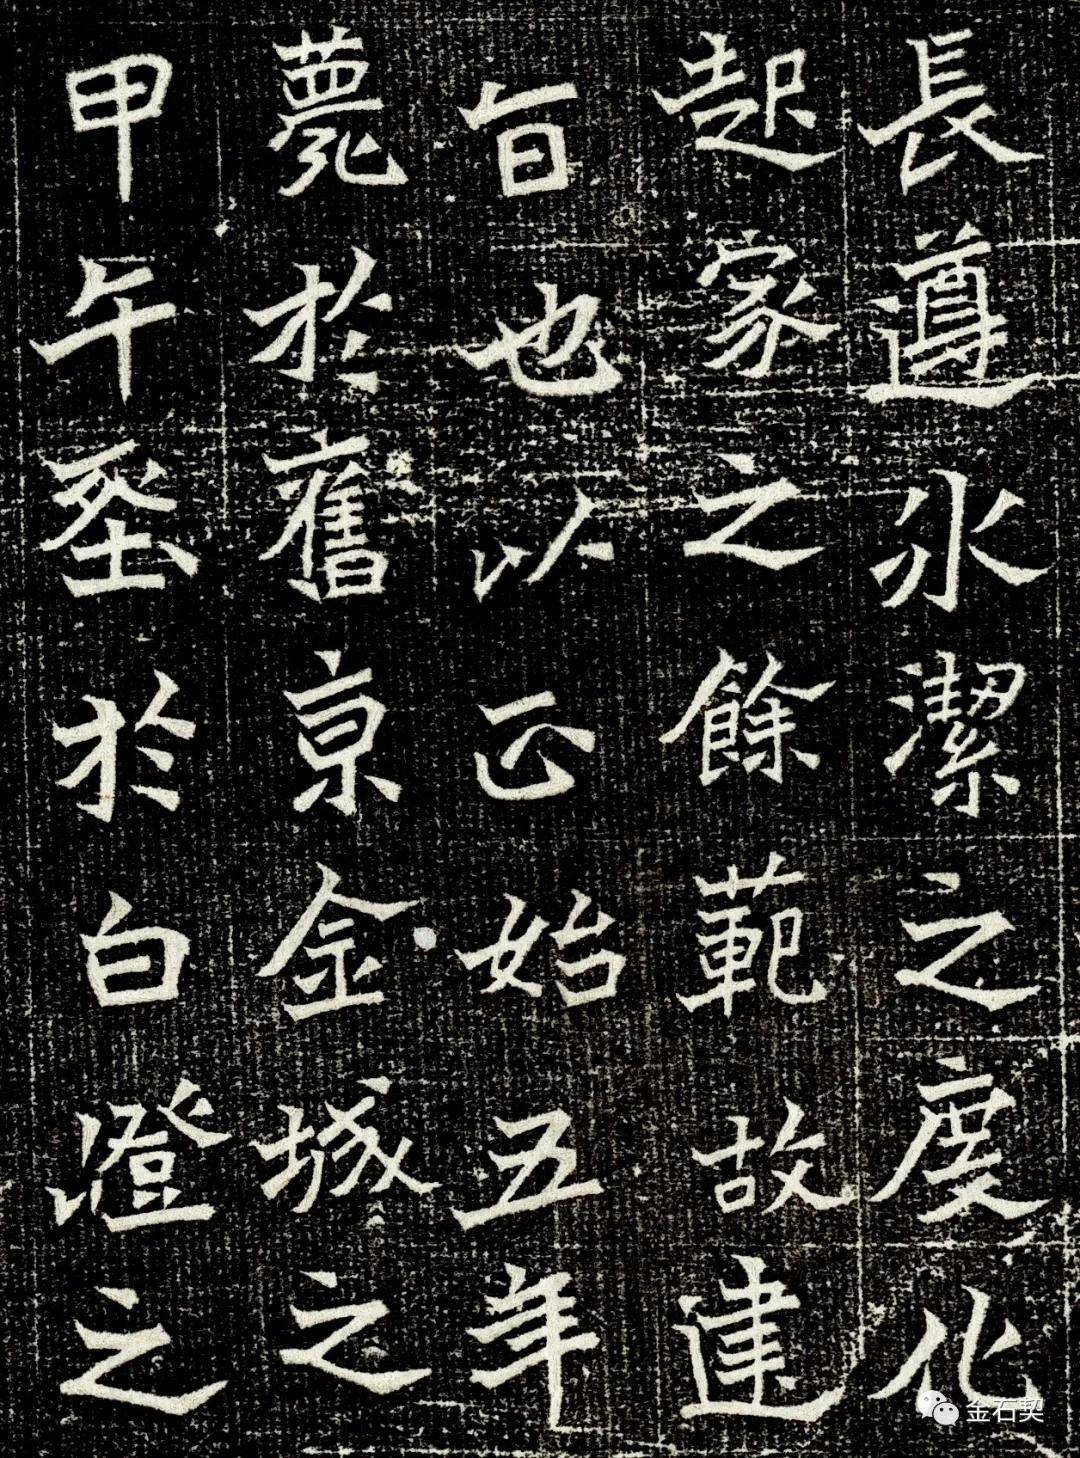 長遵水潔之度化
起家之餘範故建
旨也以正始五年
薨於舊京金城之
甲午塟於白澄之
金石契